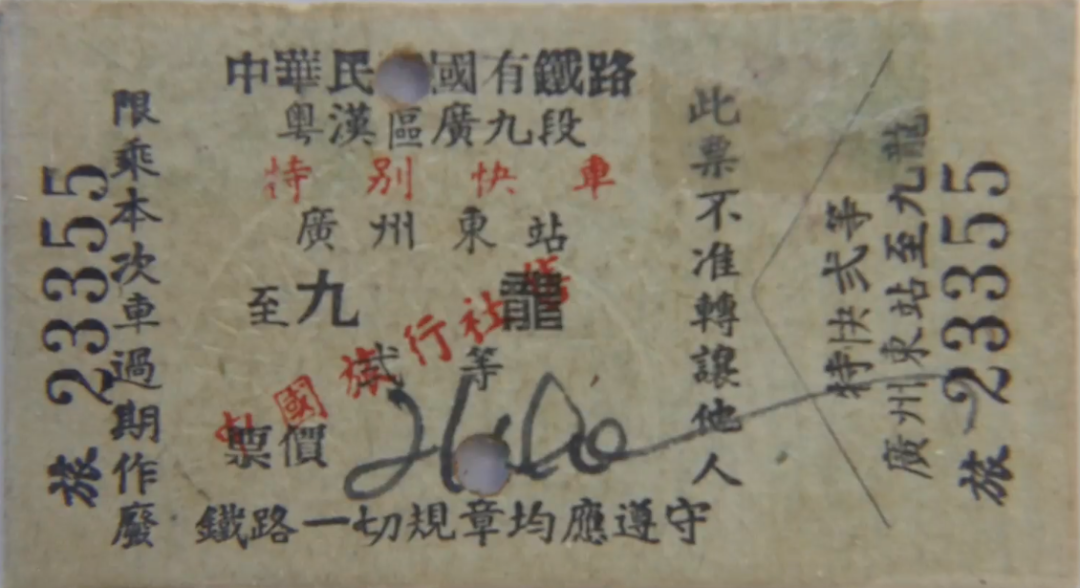 旅 23355
限乘本次車過期作廢
中華民國有鐵路
粵漢區廣九段
特別快車
廣州東站
至九龍
貳等
票價
中國旅行社
鐵路一切規章均應遵守
此票不准轉讓他人
特快弍等
廣州東站至九龍
旅 23355